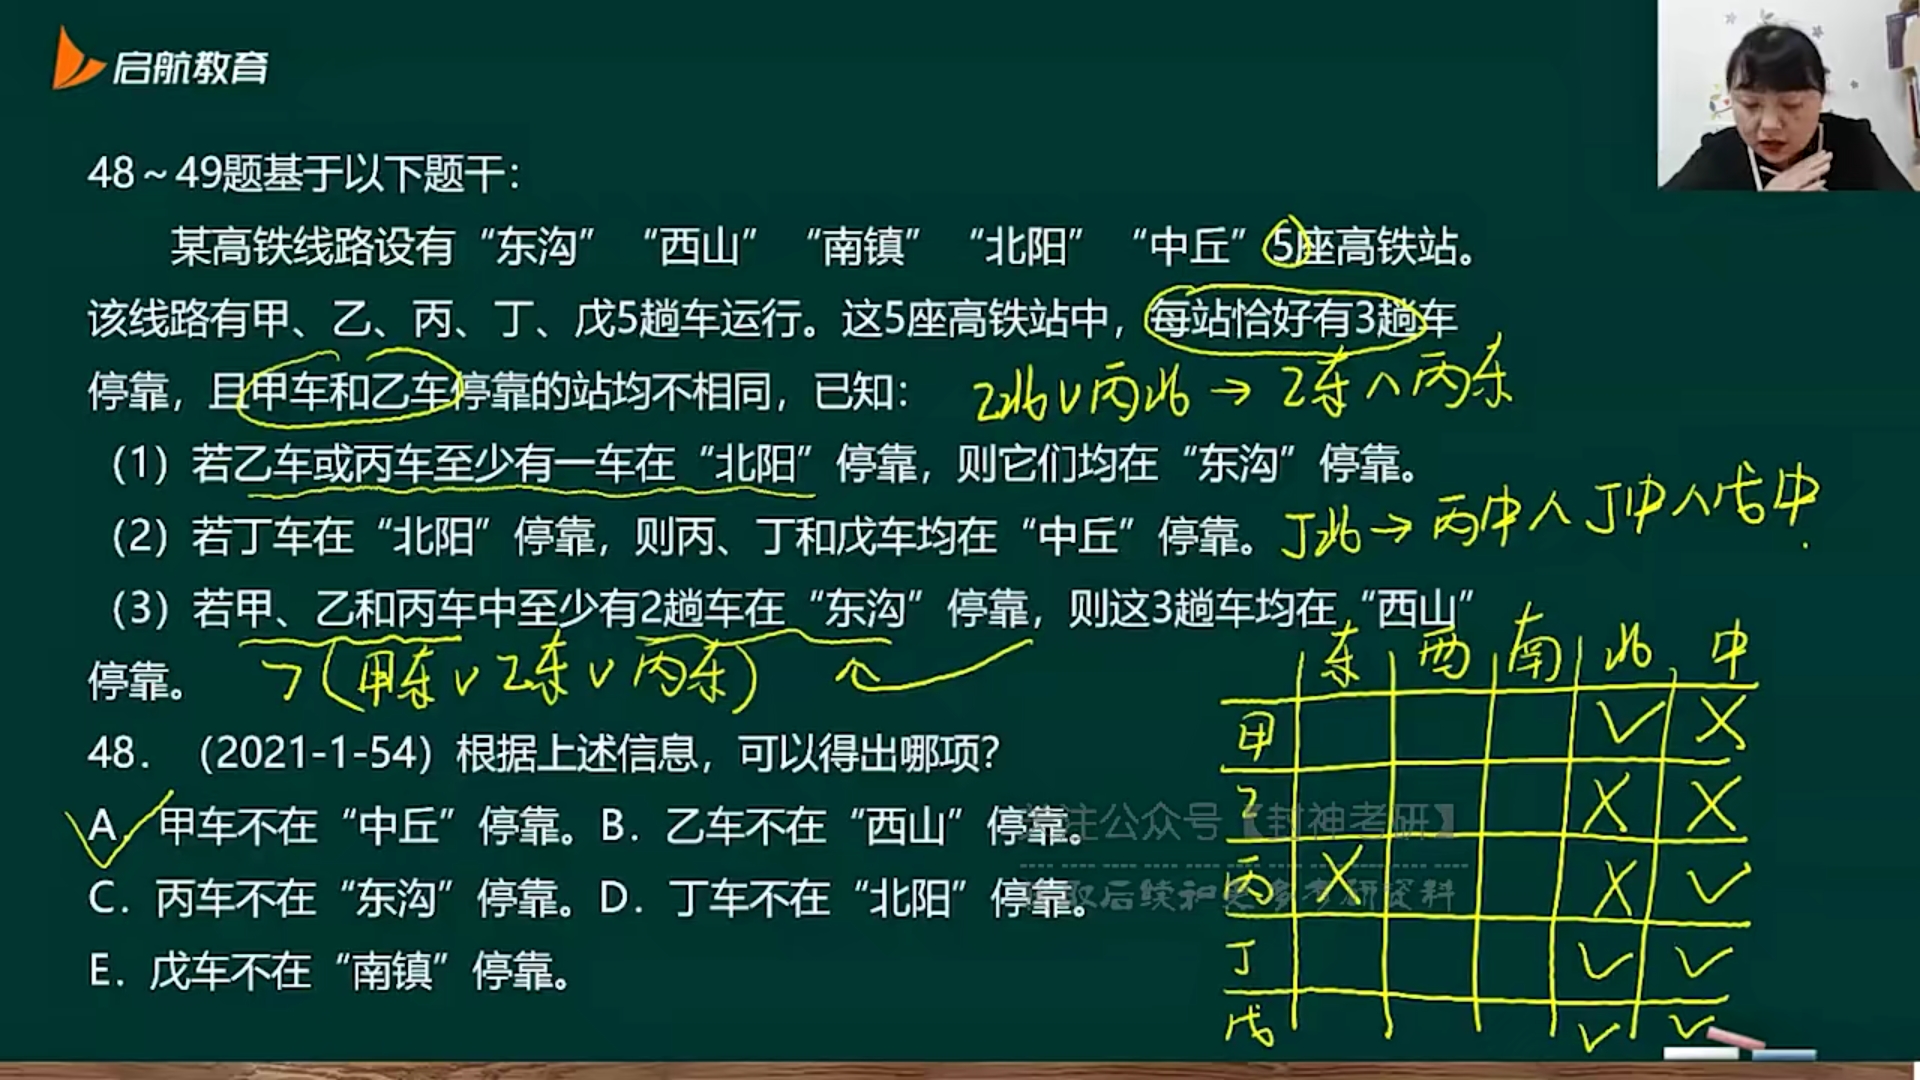 启航教育
48～49题基于以下题干：
某高铁线路设有“东沟”“西山”“南镇”“北阳”“中丘”5座高铁站。
该线路有甲、乙、丙、丁、戊5趟车运行。这5座高铁站中，每站恰好有3趟车
停靠，且甲车和乙车停靠的站均不相同，已知：
乙北∨丙北→乙东∧丙东
（1）若乙车或丙车至少有一车在“北阳”停靠，则它们均在“东沟”停靠。
（2）若丁车在“北阳”停靠，则丙、丁和戊车均在“中丘”停靠。
丁北→丙中∧丁中∧戊中
（3）若甲、乙和丙车中至少有2趟车在“东沟”停靠，则这3趟车均在“西山”
停靠。
ㄱ(甲东∨乙东∨丙东)
东 西 南 北 中
甲 ✓ X
乙 X X
丙 X X ✓
丁 ✓ ✓
戊 ✓ ✓
48．（2021-1-54）根据上述信息，可以得出哪项？
A．甲车不在“中丘”停靠。B．乙车不在“西山”停靠。
C．丙车不在“东沟”停靠。D．丁车不在“北阳”停靠。
E．戊车不在“南镇”停靠。
注公众号【封神考研】
取后续和更多考研资料